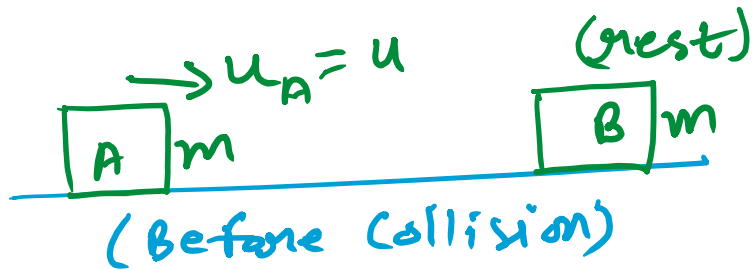 (rest)
u_A = u
A m
B m
(Before Collision)